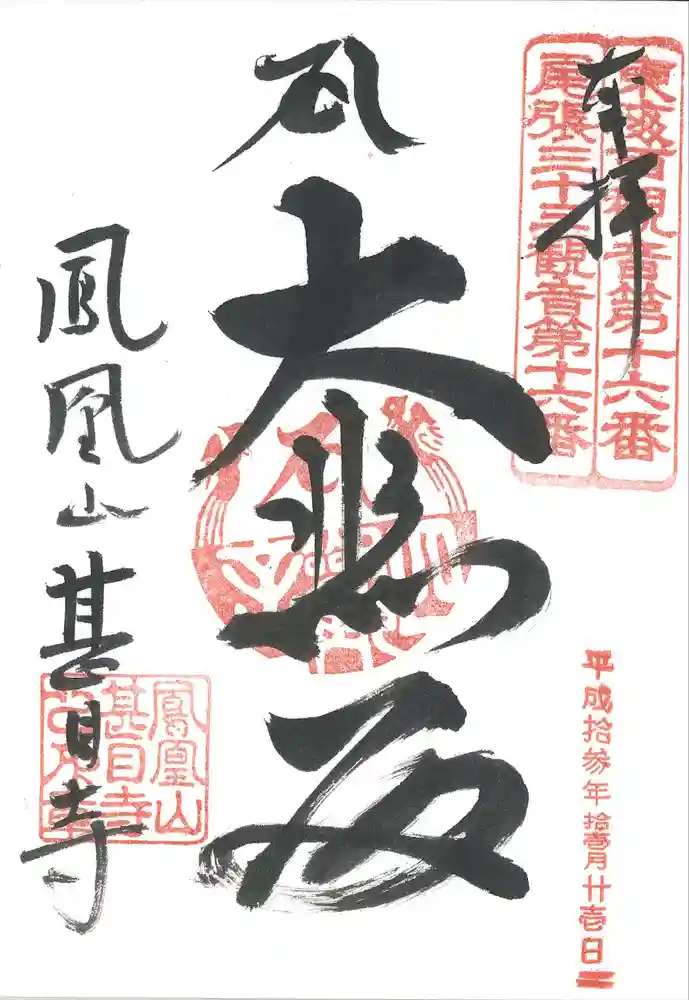 奉拝
東海百観音第十六番
尾張三十三観音第十六番
大悲殿
鳳凰山甚目寺
鳳凰山
甚目寺
平成拾参年拾壱月廿壱日